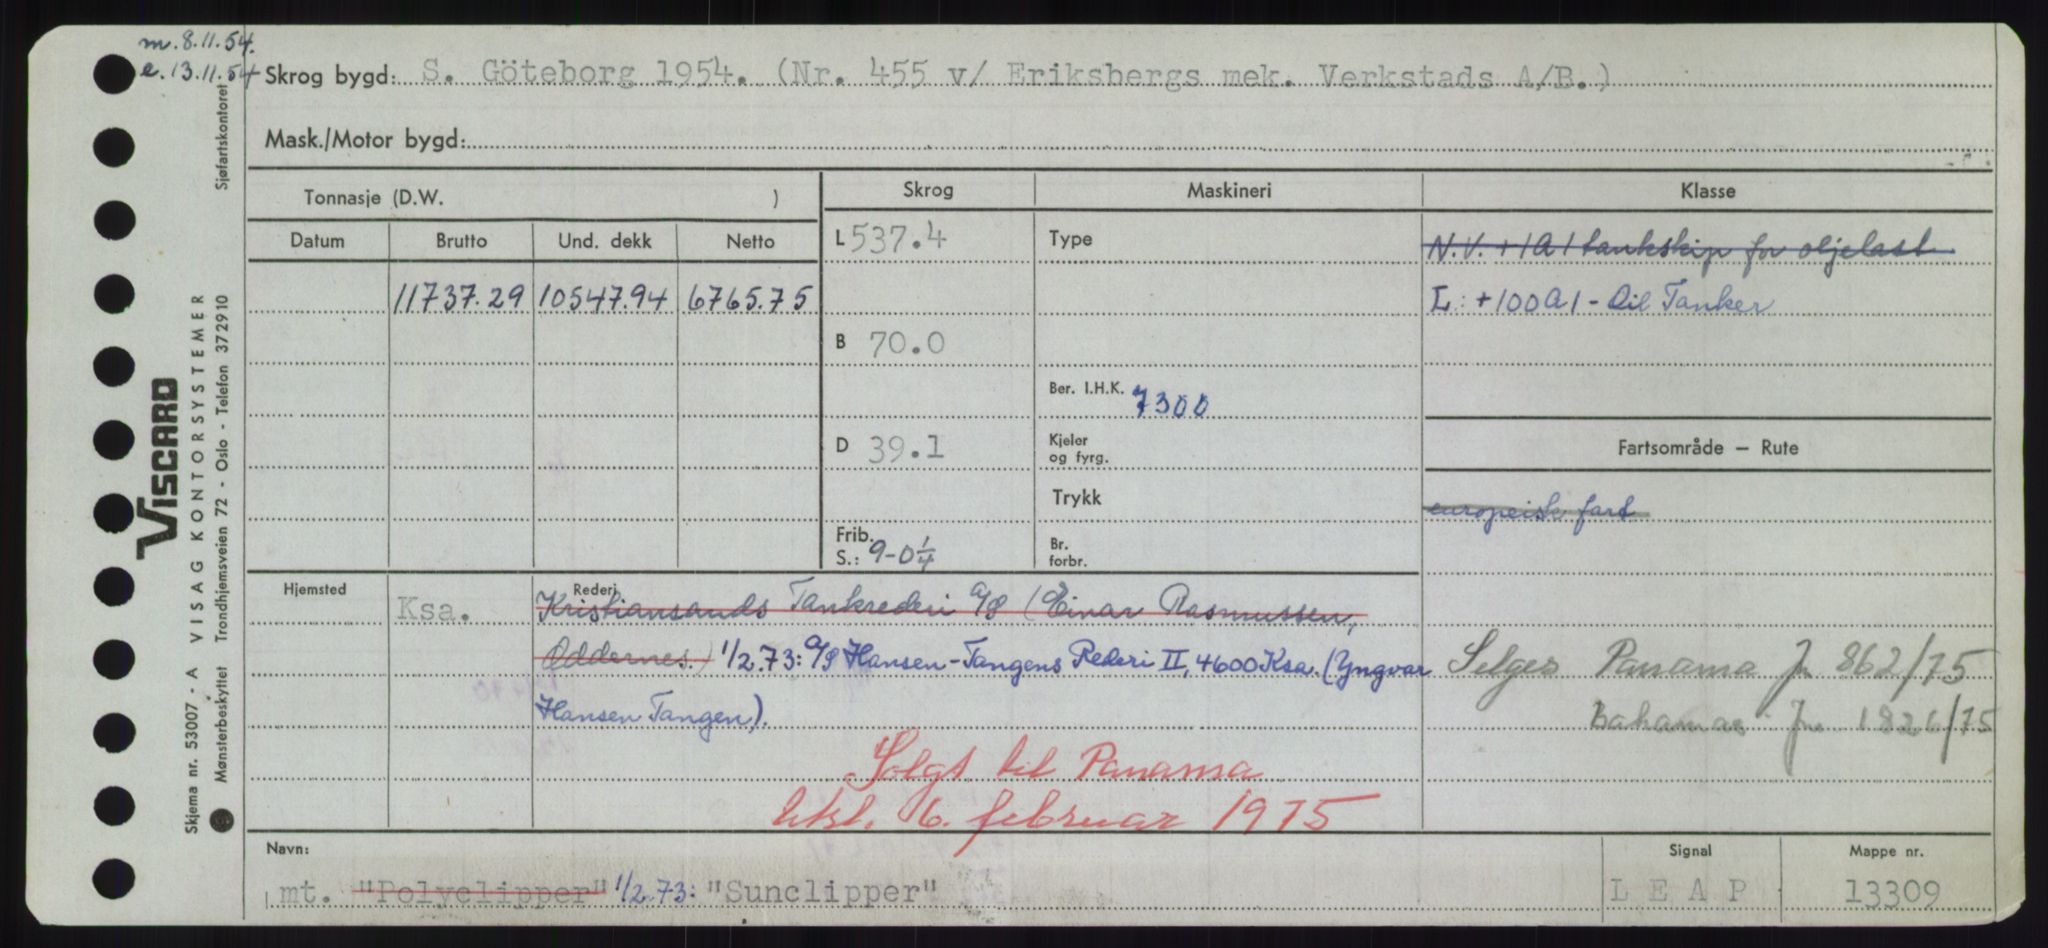 m. 8.11.54.
e. 13.11.54
Skrog bygd: S. Göteborg 1954. (Nr. 455 v/ Eriksbergs mek. Verkstads A/B.)
Mask./Motor bygd:
Tonnasje (D.W. )
Skrog
Maskineri
Klasse
Datum Brutto Und. dekk Netto
11737.29 10547.94 6765.75
L 537.4
B 70.0
D 39.1
Frib.
S.: 9-0 1/4
Type
Ber. I.H.K. 7300
Kjeler
og fyrg.
Trykk
Br.
forbr.
N.V. +1A1 tankskip for oljelast
L: +100A1 - Oil Tanker
Fartsområde – Rute
europeisk fart
Selges Panama Jr 862/75
Bahamas Jr. 1826/75
Hjemsted
Ksa.
Rederi
Kristiansands Tankrederi A/S (Einar Rasmussen,
Oddernes.) 1/2.73: A/S Hansen-Tangens Rederi II, 4600 Ksa. (Yngvar
Hansen Tangen).
Solgt til Panama
6. februar 1975
Navn:
mt. "Polyclipper" 1/2.73: "Sunclipper"
Signal
LEAP
Mappe nr.
13309
VISCARD
Skjema nr. 53007 - A VISAG KONTORSYSTEMER
Mønsterbeskyttet Trondhjemsveien 72 - Oslo - Telefon 372910
Sjøfartskontoret